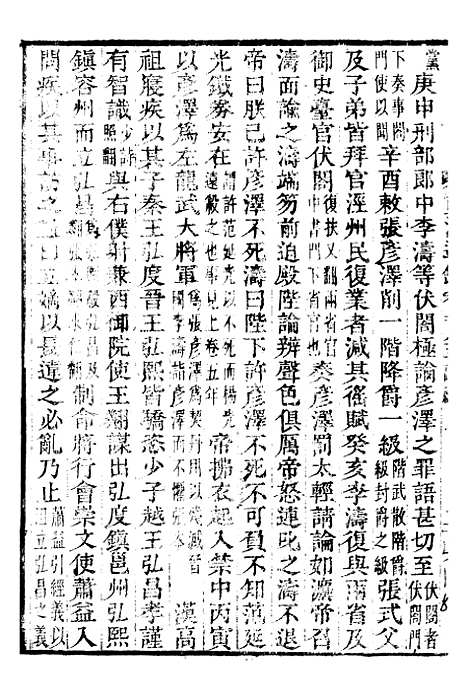 黨庚申刑部郎中李濤等伏閤極論彥澤之罪語甚切至伏閤者伏閤門
下奏事閤門使以聞辛酉敕張彥澤削一階降爵一級階武散階爵級封爵之級張式父
及子弟皆拜官涇州民復業者減其徭賦癸亥李濤復與兩省及
御史臺官伏閤復扶又翻兩省官中書門下省官也奏彥澤罰太輕請論如灋帝召
濤面諭之濤端笏前迫殿陛論辨聲色俱厲帝怒連叱之濤不退
帝曰朕已許彥澤不死濤曰陛下許彥澤不死不可負不知范延
光鐵券安在謂許范延光不死而楊光遠殺之也事見上卷五年帝拂衣起入禁中丙寅
以彥澤爲左龍武大將軍爲張彥澤爲契丹用殘滅晉李濤詣彥澤而不懼張本漢高
祖寢疾以其子秦王弘度晉王弘熙皆驕恣少子越王弘昌孝謹
有智識少詩照翻與右僕射兼西御院使王翷謀出弘度鎮邕州弘熙
鎮容州而立弘昌制命將行會崇文使蕭益入
問疾以其事訪之益曰立嫡以長違之必亂乃止蕭益引經義以沮立弘昌之義